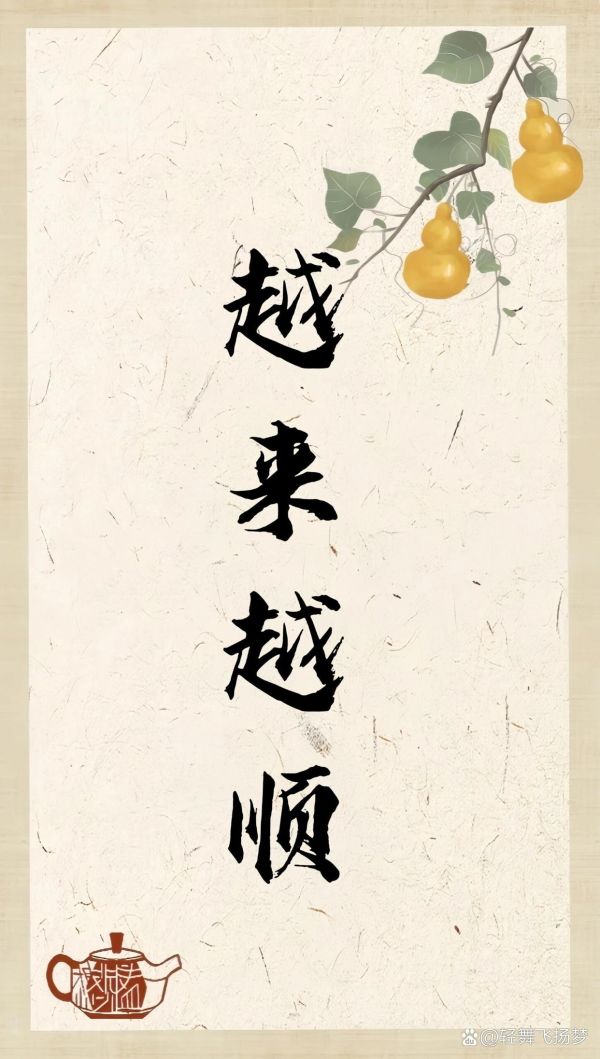 越来越顺
@轻舞飞扬梦